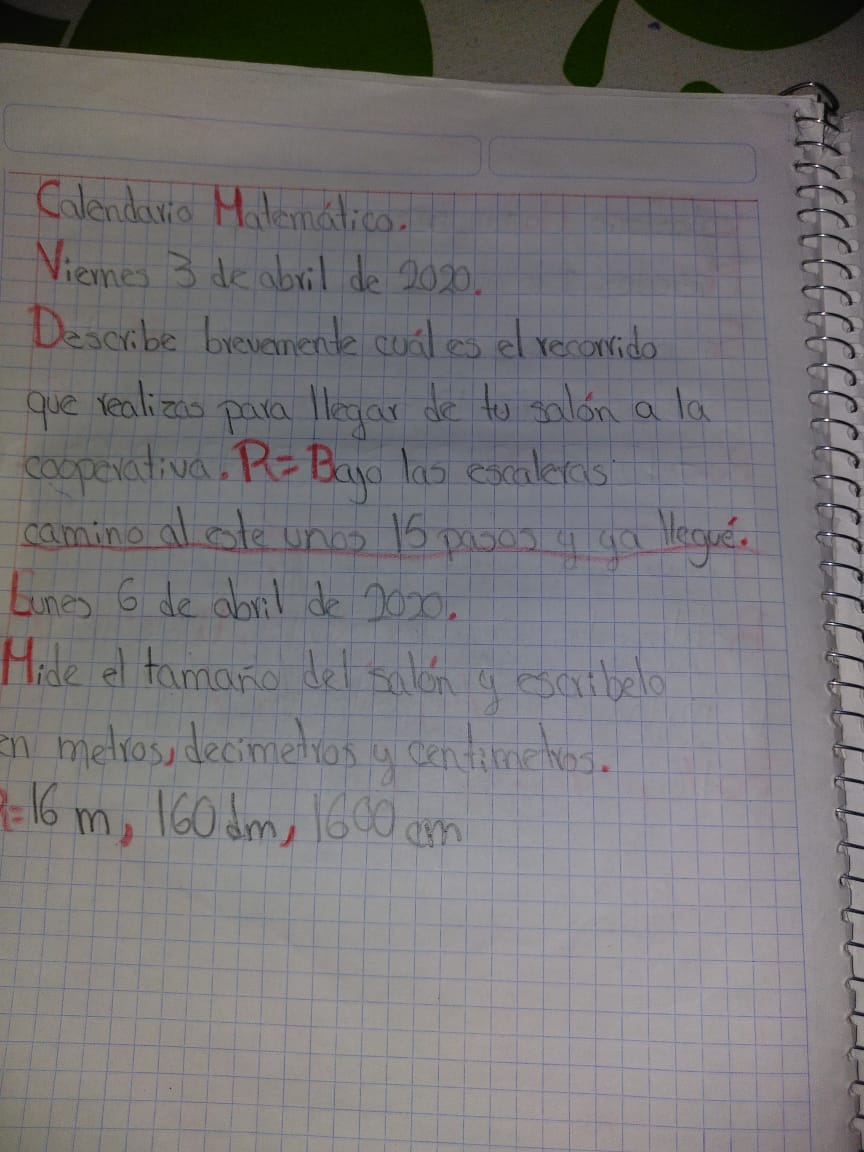 Calendario Matemático.
Viernes 3 de abril de 2020.
Describe brevemente cuál es el recorrido
que realizas para llegar de tu salón a la
cooperativa. R= Bajo las escaleras
camino al este unos 15 pasos y ya llegué.
Lunes 6 de abril de 2020.
Mide el tamaño del salón y escribelo
en metros, decimetros y centimetros.
R=16 m, 160 dm, 1600 cm